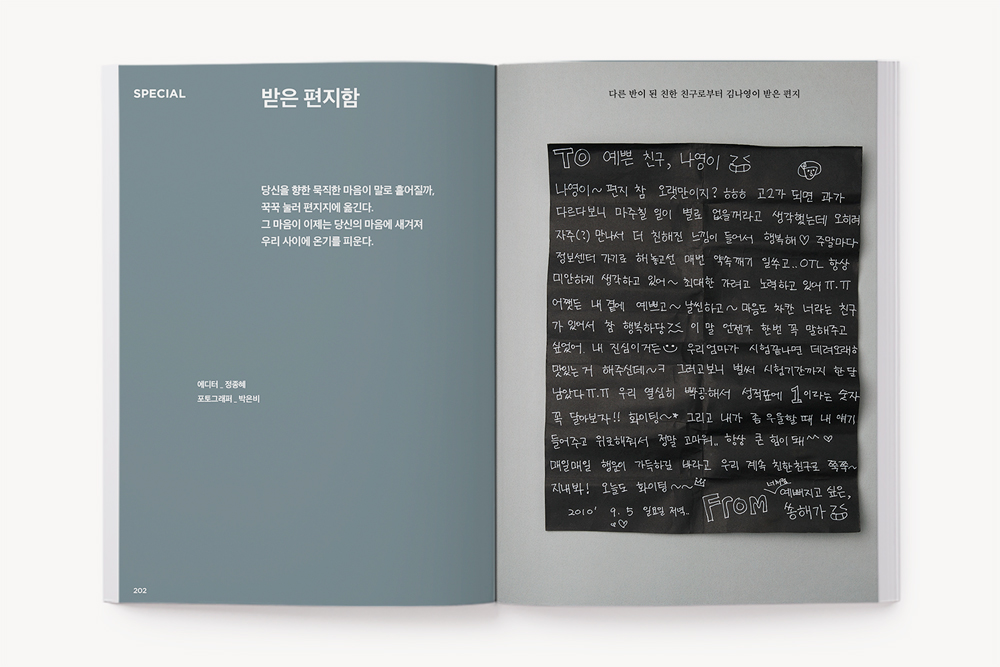 SPECIAL
받은 편지함
당신을 향한 묵직한 마음이 말로 흩어질까,
꾹꾹 눌러 편지지에 옮긴다.
그 마음이 이제는 당신의 마음에 새겨져
우리 사이에 온기를 피운다.
에디터 _ 정종혜
포토그래퍼 _ 박은비
202
다른 반이 된 친한 친구로부터 김나영이 받은 편지
TO 예쁜 친구, 나영이
나영이~ 편지 참 오랫만이지? ㅎㅎㅎ 고2가 되면 과가
다르다보니 마주칠 일이 별로 없을꺼라고 생각했는데 오히려
자주(?) 만나서 더 친해진 느낌이 들어서 행복해♡ 주말마다
정보센터 가기로 해놓고선 매번 약속깨기 일쑤고... OTL 항상
미안하게 생각하고 있어~ 최대한 가려고 노력하고 있어 ㅠ.ㅠ
어쨋든 내 곁에 예쁘고~ 날씬하고~ 마음도 차칸 너라는 친구
가 있어서 참 행복하당 이 말 언젠가 한번 꼭 말해주고
싶었어. 내 진심이거든 우리엄마가 시험끝나면 데려오래ㅎ
맛있는거 해주신데~ㅋ 그러고보니 벌써 시험기간까지 한달
남았다ㅠ.ㅠ 우리 열심히 빡공해서 성적표에 1이라는 숫자
꼭 달아보자!! 화이팅~* 그리고 내가 좀 우울할 때 내 얘기
들어주고 위로해줘서 정말 고마워.. 항상 큰 힘이 돼^^ ♡
매일매일 행운이 가득하길 바라고 우리 계속 친한친구로 쭉쭉~
지내봐! 오늘도 화이팅~~
2010' 9. 5 일요일 저녁..
From 예뻐지고 싶은,
쏭해가